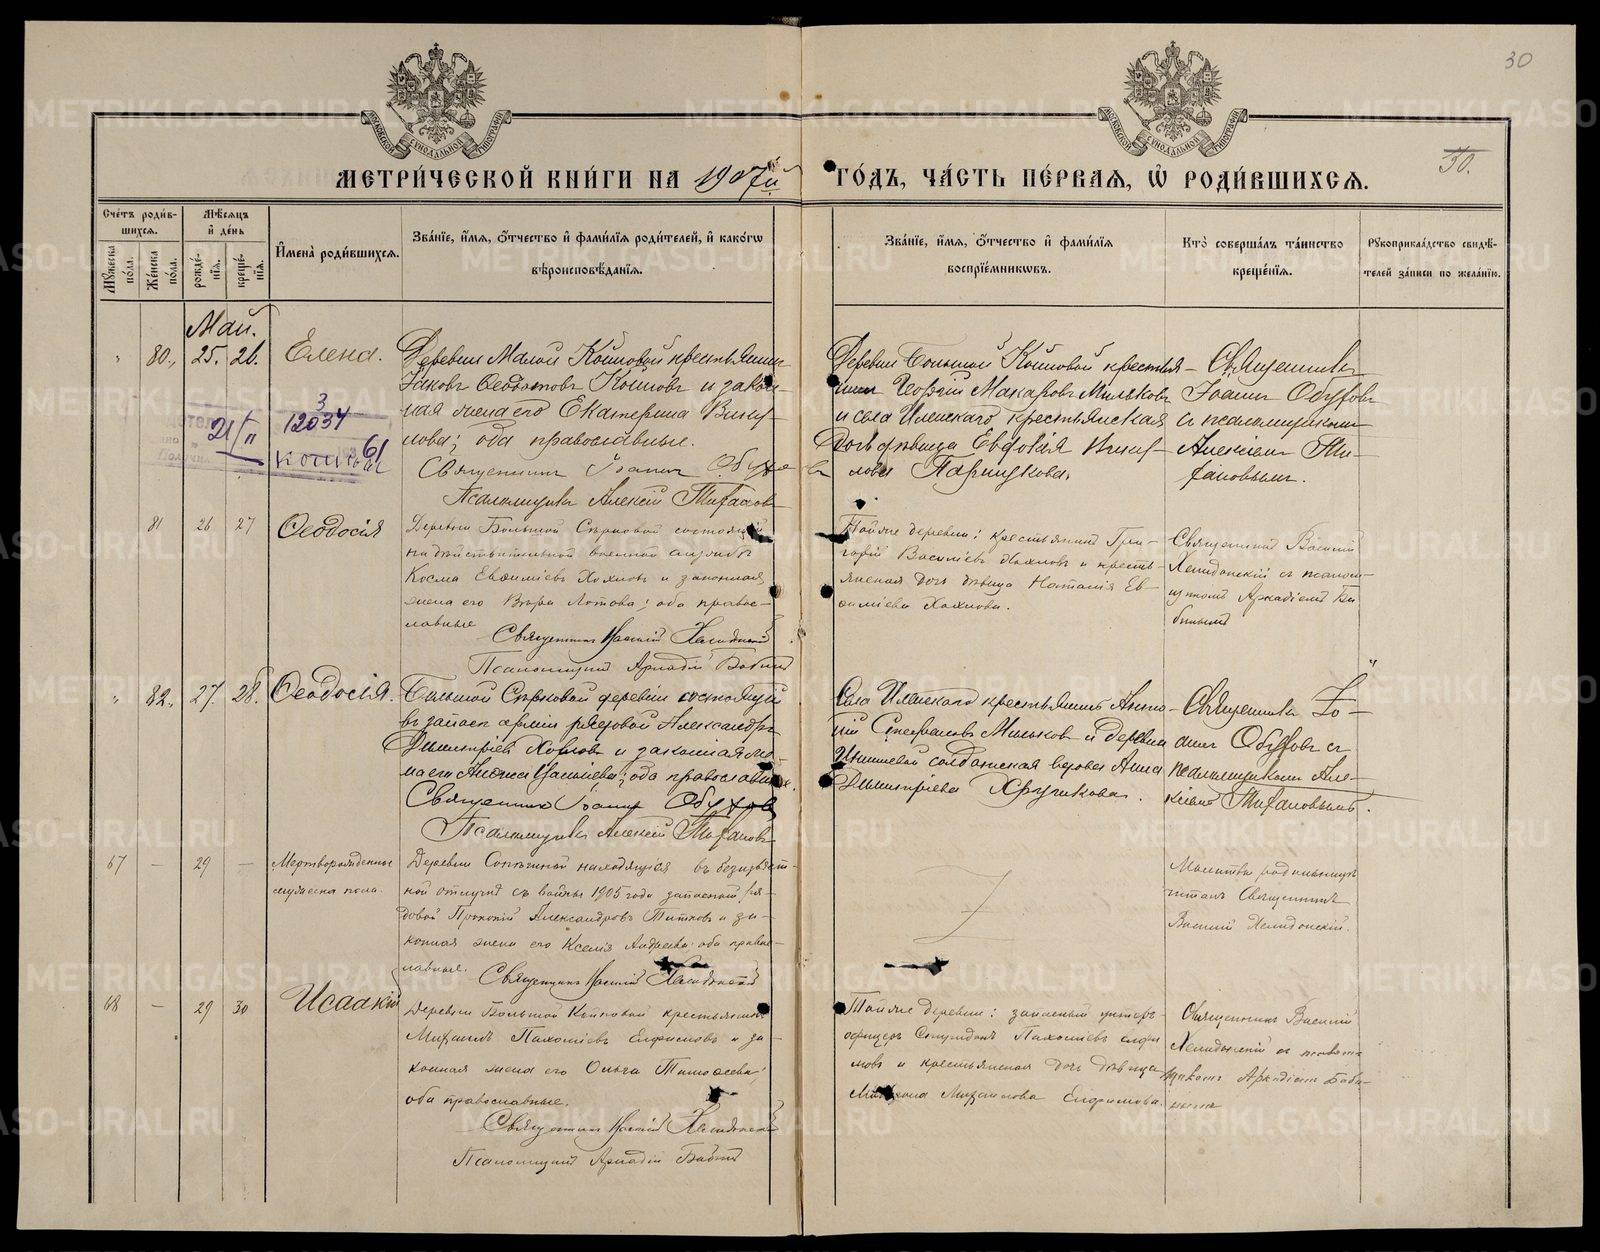 30
30.
МЕТРИ́ЧЕСКОЙ КНИ́ГИ НА 1907й ГО́ДЪ, ЧА́СТЬ ПЕ́РВАЯ, Ѡ҆ РОДИ́ВШИХСЯ.
Сче́тъ роди́в-
шихся.
Мꙋ́жеска по́ла.
Же́нска по́ла.
Мѣ́сяцъ
и҆ де́нь
рожде́-
нїя.
креще́-
нїя.
И҆мена̀ роди́вшихся.
Зва́нїе, и҆́мя, ѻ҆́тчество и҆ фами́лїя роди́телей, и҆ како́гѡ
вѣроисповѣ́данїя.
Зва́нїе, и҆́мя, ѻ҆́тчество и҆ фами́лїя
воспрїе́мникѡвъ.
Кто̀ соверша́лъ та́инство
креще́нїя.
Рꙋкоприкла́дство свидѣ́-
телей за́писи по жела́нїю.
Май.
80. 25. 26. Елена.
Деревни Малой Кошковой крестьянин
Іаковъ Ѳедотовъ Кошковъ и закон-
ная жена его Екатерина Вику-
лова; оба православные.
Священникъ Іоаннъ Обуховъ
Псаломщикъ Алексій Тихановъ
Деревни Большой Кошковой крестья-
нинъ Георгій Макаровъ Миньковъ
и села Иленскаго крестьянская
дочь дѣвица Евдокія Вику-
лова Паршукова.
Священникъ
Іоаннъ Обуховъ
съ псаломщикомъ
Алексіемъ Ти-
хановымъ.
3
12034
21/II
61
81 26 27 Ѳеодосія
Деревни Большой Сѣрковой состоящій
на дѣйствительной военной службѣ
Косма Евѳиміевъ Хохловъ и законная
жена его Вѣра Лотова; оба право-
славные
Священникъ Василій Хелидонскій
Псаломщикъ Аркадій Бабинъ
Той же деревни: крестьянинъ Гри-
горій Василіевъ Хохловъ и кресть-
янская дочь дѣвица Наталія Ев-
ѳиміева Хохлова.
Священникъ Василій
Хелидонскій съ псалом-
щикомъ Аркадіемъ Ба-
бинымъ
82. 27. 28. Ѳеодосія.
Большой Сѣрковой деревни состоящій
въ запасѣ арміи рядовой Александръ
Димитріевъ Хохловъ и законная же-
на его Анѳиса Василіева; оба православные.
Священникъ Іоаннъ Обуховъ
Псаломщикъ Алексій Тихановъ
Села Иленскаго крестьянинъ Анто-
ній Стефановъ Миньковъ и деревни
солдатская вдова Анна
Димитріева Хрущкова.
Священникъ Іо-
аннъ Обуховъ съ
псаломщикомъ Але-
ксіемъ Тихановымъ.
67 — 29 — Мертворожденный
мужеска пола.
Деревни находящійся въ безвѣст-
ной отлучкѣ съ войны 1905 года запасный ря-
довой Прокопій Александровъ Титковъ и за-
конная жена его Ксенія Андреева; оба право-
славные.
Священникъ Василій Хелидонскій
Молитвы родильницѣ
читалъ Священникъ
Василій Хелидонскій.
68 — 29 30 Исаакій
Деревни Большой Кошковой крестьянинъ
Михаилъ Пахоміевъ Елфимовъ и за-
конная жена его Ольга Тимоѳеева;
оба православные.
Священникъ Василій Хелидонскій
Псаломщикъ Аркадій Бабинъ
Той же деревни: запасный унтеръ-
офицеръ Спиридонъ Пахоміевъ Елфи-
мовъ и крестьянская дочь дѣвица
Михайлова Елфимова.
Священникъ Василій
Хелидонскій съ псалом-
щикомъ Аркадіемъ Баби-
нымъ
METRIKI.GASO-URAL.RU